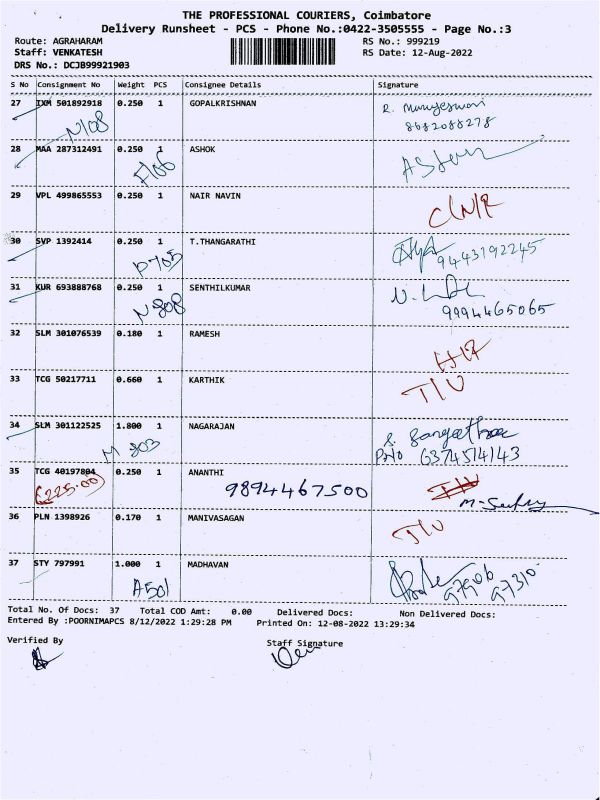 THE PROFESSIONAL COURIERS, Coimbatore
Delivery Runsheet - PCS - Phone No.:0422-3505555 - Page No.:3
Route: AGRAHARAM RS No.: 999219
Staff: VENKATESH RS Date: 12-Aug-2022
DRS No.: DCJB99921903
S No Consignment No Weight PCS Consignee Details Signature
27 IXM 501892918 0.250 1 GOPALKRISHNAN
N108 8682088278
28 MAA 287312491 0.250 1 ASHOK
F106
29 VPL 499865553 0.250 1 NAIR NAVIN
30 SVP 1392414 0.250 1 T.THANGARATHI
P705 9443192245
31 KUR 693888768 0.250 1 SENTHILKUMAR
N 808 9994465065
32 SLM 301076539 0.180 1 RAMESH
33 TCG 50217711 0.660 1 KARTHIK
T/U
34 SLM 301122525 1.800 1 NAGARAJAN
M 803 6374514143
35 TCG 40197804 0.250 1 ANANTHI
225.00 9894467500
36 PLN 1398926 0.170 1 MANIVASAGAN
T/U
37 STY 797991 1.000 1 MADHAVAN
A501 97906 97310
Total No. Of Docs: 37 Total COD Amt: 0.00 Delivered Docs: Non Delivered Docs:
Entered By :POORNIMAPCS 8/12/2022 1:29:28 PM Printed On: 12-08-2022 13:29:34
Verified By Staff Signature